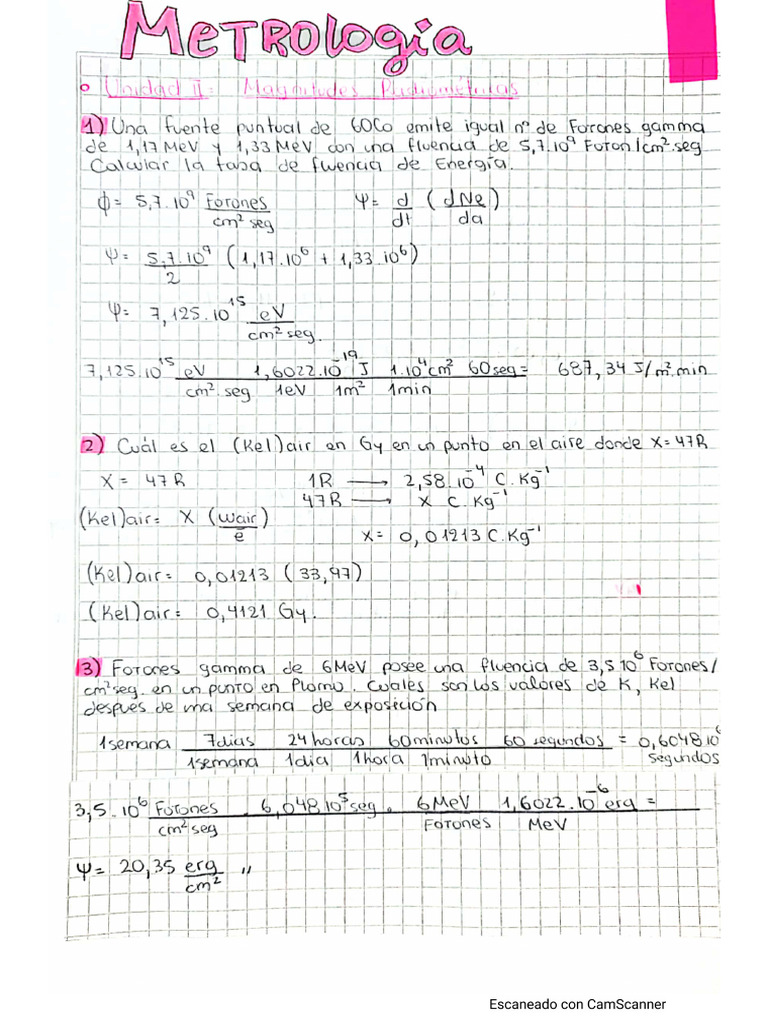 Metrología
• Unidad II: Magnitudes Radiométricas
1) Una fuente puntual de 60Co emite igual nº de Fotones gamma
de 1,17 MeV y 1,33 MeV con una fluencia de 5,7.10⁹ Foton/cm².seg
Calcular la tasa de fluencia de Energía.
ϕ= 5,7.10⁹ Fotones/cm² seg    Ψ= d/dt (dNe/da)
Ψ= 5,7.10⁹/2 (1,17.10⁶ + 1,33.10⁶)
Ψ= 7,125.10¹⁵ eV/cm² seg.
7,125.10¹⁵ eV/cm². seg 1,6022.10⁻¹⁹ J/1eV 1.10⁴cm²/1m² 60seg/1min = 687,34 J/m².min
2) Cuál es el (Kel)air en Gy en un punto en el aire donde X=47R
X= 47R    1R → 2,58.10⁻⁴ C.Kg⁻¹
47R → X C.Kg⁻¹
(Kel)air= X (Wair/e̅)    X= 0,01213 C.Kg⁻¹
(Kel)air= 0,01213 (33,97)
(Kel)air= 0,4121 Gy.
3) Fotones gamma de 6MeV posee una fluencia de 3,5 10⁶ Fotones/
cm²seg. en un punto en Plomo. Cuales son los valores de K, Kel
despues de una semana de exposición
1semana 7dias/1semana 24horas/1dia 60minutos/1hora 60 segundos/1minuto = 0,6048 10⁶ segundos
3,5.10⁶ Fotones/cm² seg . 6,048 10⁵seg. 6MeV/Fotones 1,6022.10⁻⁶ erg/MeV =
Ψ= 20,35 erg/cm² ,,
Escaneado con CamScanner